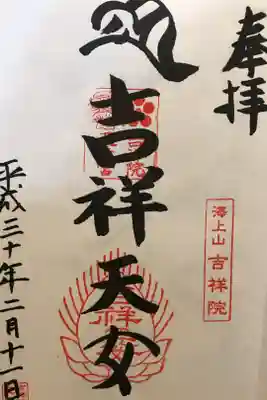 奉拝
澤上山 吉祥院
吉祥天女
平成三十年二月十一日